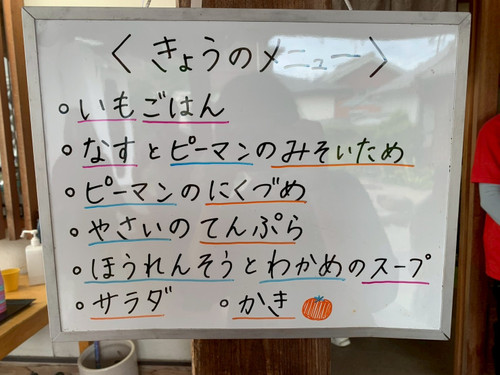 〈きょうのメニュー〉
○いもごはん
○なすとピーマンのみそいため
○ピーマンのにくづめ
○やさいのてんぷら
○ほうれんそうとわかめのスープ
○サラダ ○かき